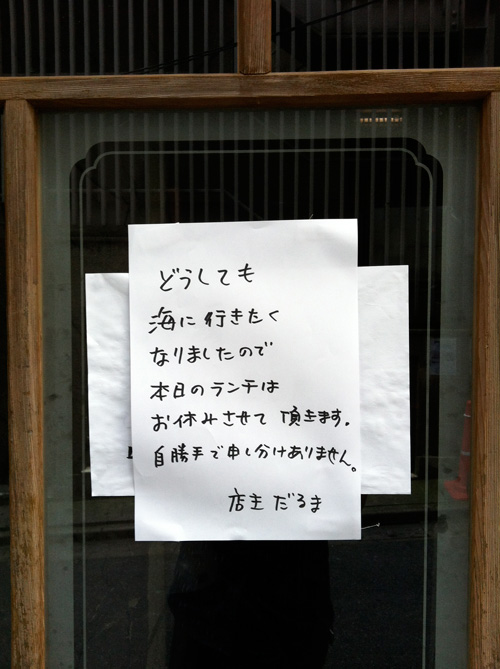 どうしても
海に行きたく
なりましたので
本日のランチは
お休みさせて頂きます。
自勝手で申し分けありません。
店主 だるま